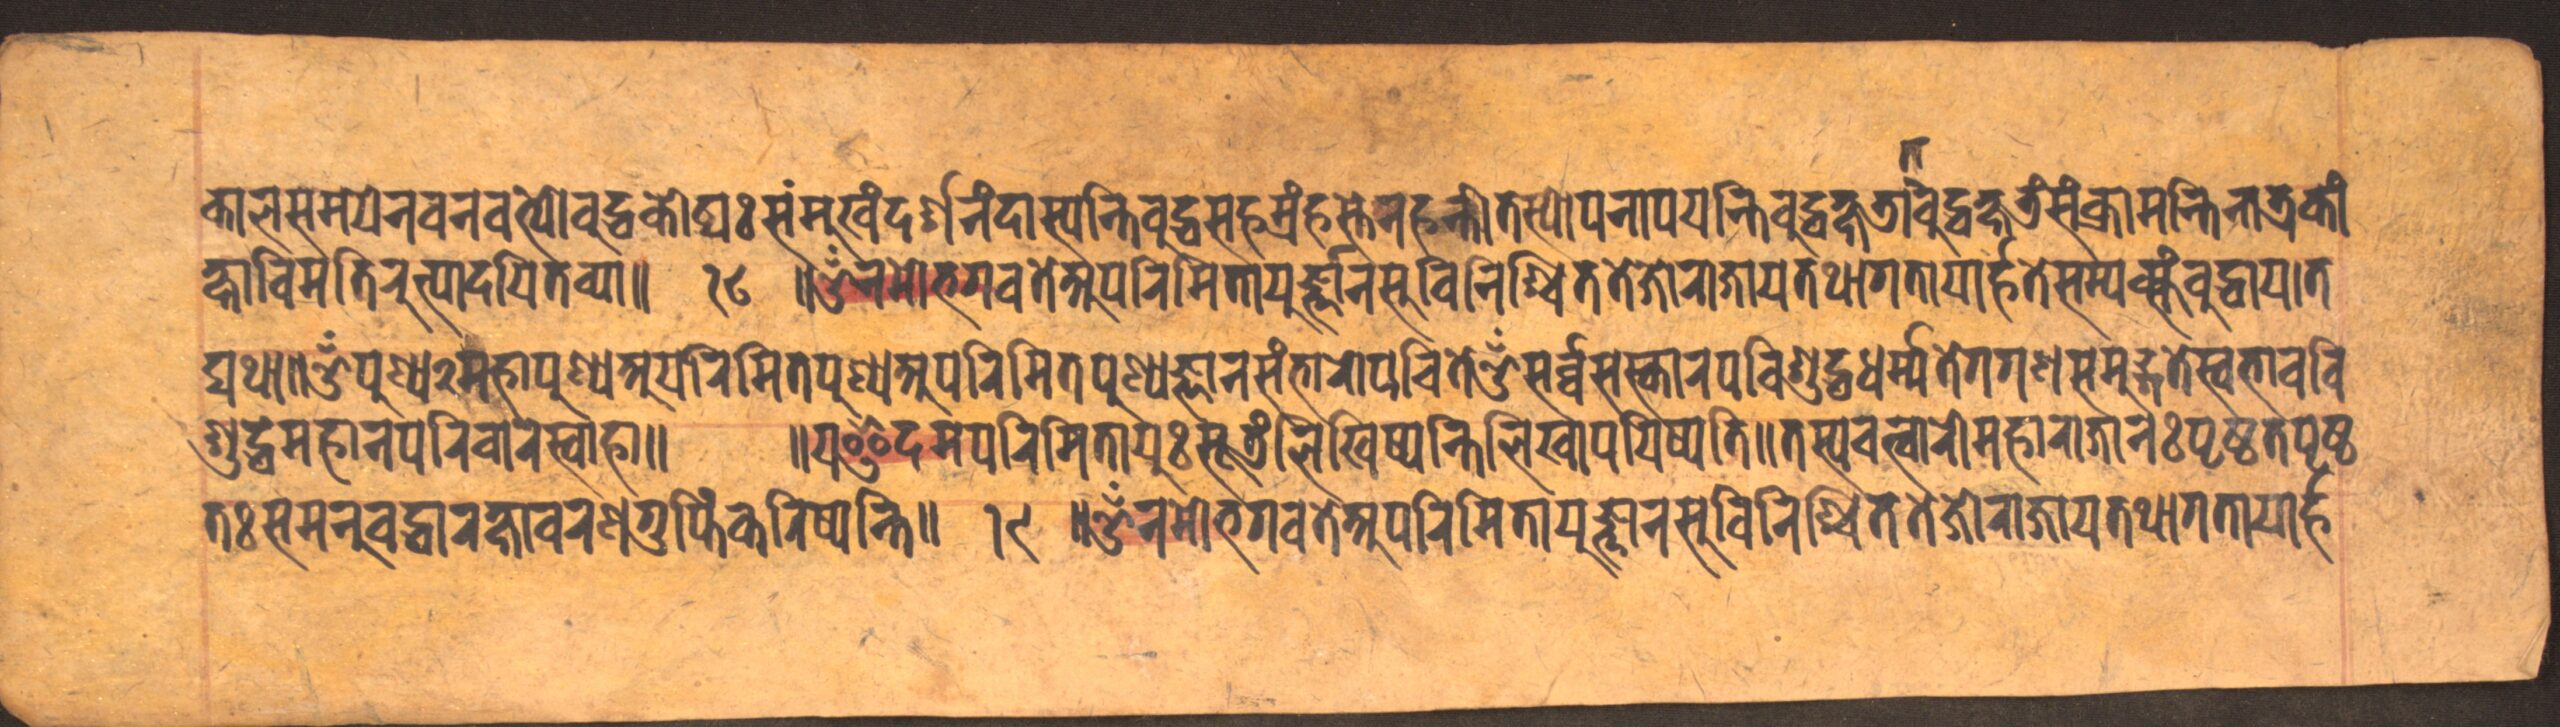 कालसमयेनवनवत्यो वुद्धकोद्यः संमुखंदर्शनंदास्यन्ति वुद्धसहस्रंहस्तेनहस्तीतस्योपनापयन्ति वुद्धक्षत्रा
त्
वुद्धक्षत्रंसंक्रामन्ति नात्रकां
क्षाविमतिरुत्पादयितव्या॥ १८ ॥ॐनमोभगवतेअपरिमितायुर्ज्ञानसुविनिश्चिततेजोराजायतथागतायार्हतेसम्यक्संवुद्धाय।त
द्यथा॥ॐपुण्य२महापुण्यअपरिमितपुण्यअपरिमितपुण्यज्ञानसंभारोपचितेॐसर्व्वसस्कारपविशुद्धधर्म्मतेगगणसमुद्गतेस्वभाववि
शुद्धेमहानपरिवारेस्वाहा॥ ॥यइदमपरिमितायुःसूत्रंलिखिष्यन्तिलिखापयिष्यति॥तस्यचत्वारोमहाराजानःपृष्ठतपृष्ठ
तःसमनुवद्धारक्षावरणगुप्तिंकरिष्यन्ति॥ १९ ॥ॐनमोभगवतेअपरिमितायुज्ञानसुविनिश्चिततेजोराजायतथागतायार्ह